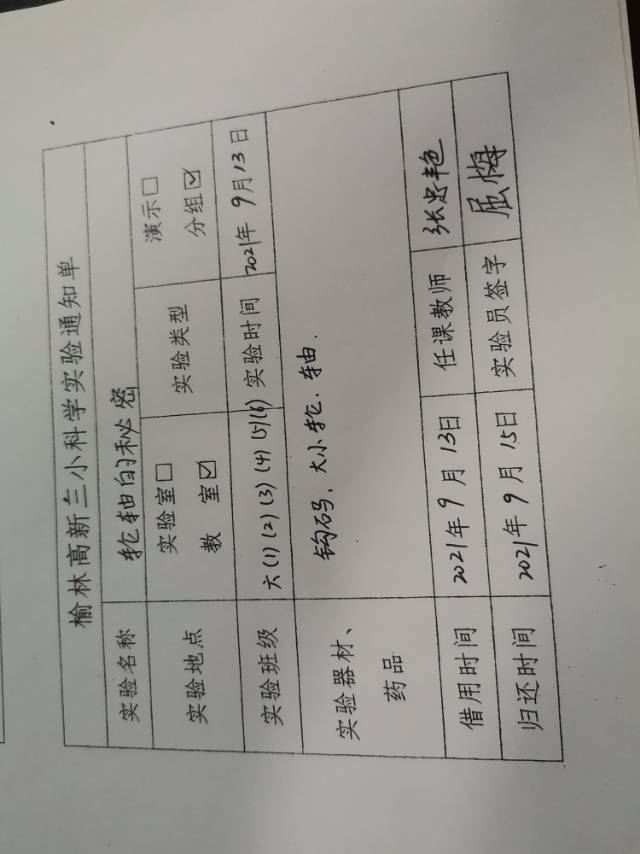 榆林高新三小科学实验通知单
实验名称 轮轴的秘密
实验地点 实验室☐ 教室☑ 实验类型 演示☐ 分组☑
实验班级 六(1)(2)(3)(4)(5)(6) 实验时间 2021年9月13日
实验器材、药品 钩码、大小轮、轴.
借用时间 2021年9月13日 任课教师 张忠艳
归还时间 2021年9月15日 实验员签字 屈梅